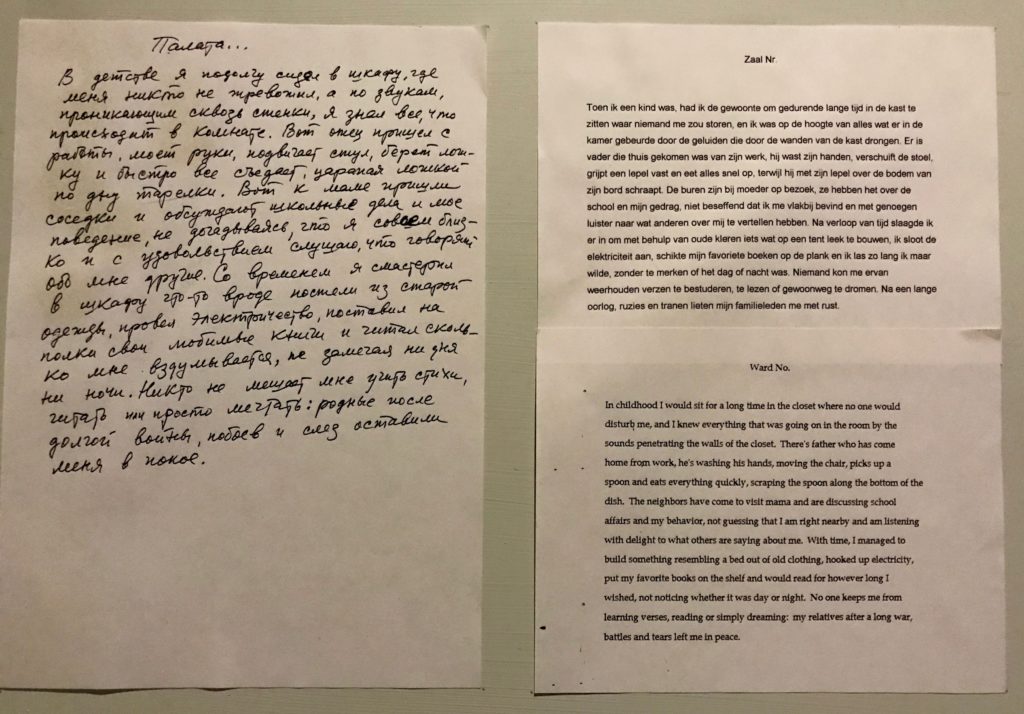 Палата...
В детстве я подолгу сидел в шкафу, где
меня никто не тревожил, а по звукам,
проникающим сквозь стенки, я знал все, что
происходит в комнате. Вот отец пришел с
работы, моет руки, подвигает стул, берет лож-
ку и быстро все съедает, царапая ложкой
по дну тарелки. Вот к маме пришли
соседки и обсуждают школьные дела и мое
поведение, не догадываясь, что я совсем близ-
ко и с удовольствием слушаю, что говорят
обо мне другие. Со временем я смастерил
в шкафу что-то вроде постели из старой
одежды, провел электричество, поставил на
полки свои любимые книги и читал сколь-
ко мне вздумывается, не замечая ни дня
ни ночи. Никто не мешает мне учить стихи,
читать или просто мечтать: родные после
долгой войны, побоев и слез оставили
меня в покое.
Zaal Nr.
Toen ik een kind was, had ik de gewoonte om gedurende lange tijd in de kast te
zitten waar niemand me zou storen, en ik was op de hoogte van alles wat er in de
kamer gebeurde door de geluiden die door de wanden van de kast drongen. Er is
vader die thuis gekomen was van zijn werk, hij wast zijn handen, verschuift de stoel,
grijpt een lepel vast en eet alles snel op, terwijl hij met zijn lepel over de bodem van
zijn bord schraapt. De buren zijn bij moeder op bezoek, ze hebben het over de
school en mijn gedrag, niet beseffend dat ik me vlakbij bevind en met genoegen
luister naar wat anderen over mij te vertellen hebben. Na verloop van tijd slaagde ik
er in om met behulp van oude kleren iets wat op een tent leek te bouwen, ik sloot de
elektriciteit aan, schikte mijn favoriete boeken op de plank en ik las zo lang ik maar
wilde, zonder te merken of het dag of nacht was. Niemand kon me ervan
weerhouden verzen te bestuderen, te lezen of gewoonweg te dromen. Na een lange
oorlog, ruzies en tranen lieten mijn familieleden me met rust.
Ward No.
In childhood I would sit for a long time in the closet where no one would
disturb me, and I knew everything that was going on in the room by the
sounds penetrating the walls of the closet. There's father who has come
home from work, he's washing his hands, moving the chair, picks up a
spoon and eats everything quickly, scraping the spoon along the bottom of the
dish. The neighbors have come to visit mama and are discussing school
affairs and my behavior, not guessing that I am right nearby and am listening
with delight to what others are saying about me. With time, I managed to
build something resembling a bed out of old clothing, hooked up electricity,
put my favorite books on the shelf and would read for however long I
wished, not noticing whether it was day or night. No one keeps me from
learning verses, reading or simply dreaming: my relatives after a long war,
battles and tears left me in peace.